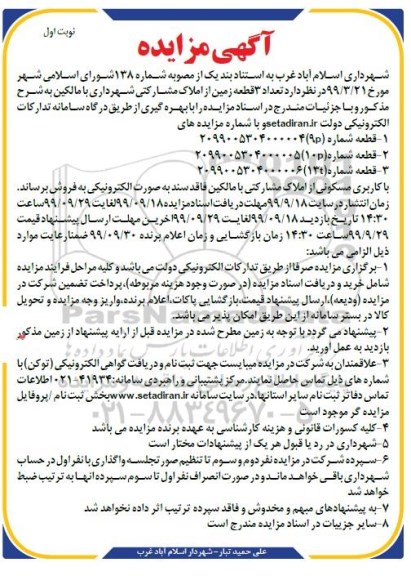 نوبت اول
آگهی مزایده
شهرداری اسلام آباد غرب به استناد بند یک از مصوبه شماره ۱۳۸ شورای اسلامی شهر
مورخ ۹۹/۳/۲۱ در نظر دارد تعداد ۳ قطعه زمین از املاک مشارکتی شهرداری با مالکین به شرح
مذکور و با جزئیات مندرج در اسناد مزایده را با بهره گیری از طریق درگاه سامانه تدارکات
الکترونیکی دولت setadiran.ir و با شماره مزایده های
۱-قطعه شماره (۹p) ۲۰۹۹۰۰۵۳۰۴۰۰۰۰۰۴
۲-قطعه شماره (۱۰p) ۲۰۹۹۰۰۵۳۰۴۰۰۰۰۰۵
۳-قطعه شماره (۱۳t) ۲۰۹۹۰۰۵۳۰۴۰۰۰۰۰۶
با کاربری مسکونی از املاک مشارکتی با مالکین فاقد سند به صورت الکترونیکی به فروش برساند.
زمان انتشار در سایت ۹۹/۹/۱۸ مهلت دریافت اسناد مزایده ۹۹/۰۹/۱۸ لغایت ۹۹/۰۹/۲۹ ساعت
۱۴:۳۰ تاریخ بازدید ۹۹/۰۹/۱۸ لغایت ۹۹/۰۹/۲۹ آخرین مهلت ارسال پیشنهاد قیمت
۹۹/۹/۲۹ ساعت ۱۴:۳۰ زمان بازگشایی و زمان اعلام برنده ۹۹/۰۹/۳۰ ضمنا رعایت موارد
ذیل الزامی می باشد:
۱-برگزاری مزایده صرفا از طریق تدارکات الکترونیکی دولت می باشد و کلیه مراحل فرایند مزایده
شامل خرید و دریافت اسناد مزایده (در صورت وجود هزینه مربوطه)،پرداخت تضمین شرکت در
مزایده (ودیعه)،ارسال پیشنهاد قیمت،بازگشایی پاکات،اعلام برنده،واریز وجه مزایده و تحویل
کالا در بستر سامانه از این طریق امکان پذیر می باشد.
۲-پیشنهاد می گردد با توجه به زمین مطرح شده در مزایده قبل از ارایه پیشنهاد از زمین مذکور
بازدید به عمل آورید.
۳-علاقمندان به شرکت در مزایده میبایست جهت ثبت نام و دریافت گواهی الکترونیکی (توکن) با
شماره های ذیل تماس حاصل نمایند.مرکز پشتیبانی و راهبردی سامانه:۴۱۹۳۴-۰۲۱ اطلاعات
تماس دفاتر ثبت نام سایر استانها،در سایت سامانه www.setadiran.ir بخش ثبت نام /پروفایل
مزایده گر موجود است
۴-کلیه کسورات قانونی و هزینه کارشناسی به عهده برنده مزایده می باشد
۵-شهرداری در رد یا قبول هر یک از پیشنهادات مختار است
۶-سپرده شرکت در مزایده نفر دوم و سوم تا تنظیم صورتجلسه واگذاری با نفر اول در حساب
شهرداری باقی خواهد ماند و در صورت انصراف نفر اول تا سوم سپرده انها به ترتیب ضبط
خواهد شد
۷-به پیشنهادهای مبهم و مخدوش و فاقد سپرده ترتیب اثر داده نخواهد شد
۸-سایر جزییات در اسناد مزایده مندرج است
علی حمید تبار - شهردار اسلام آباد غرب